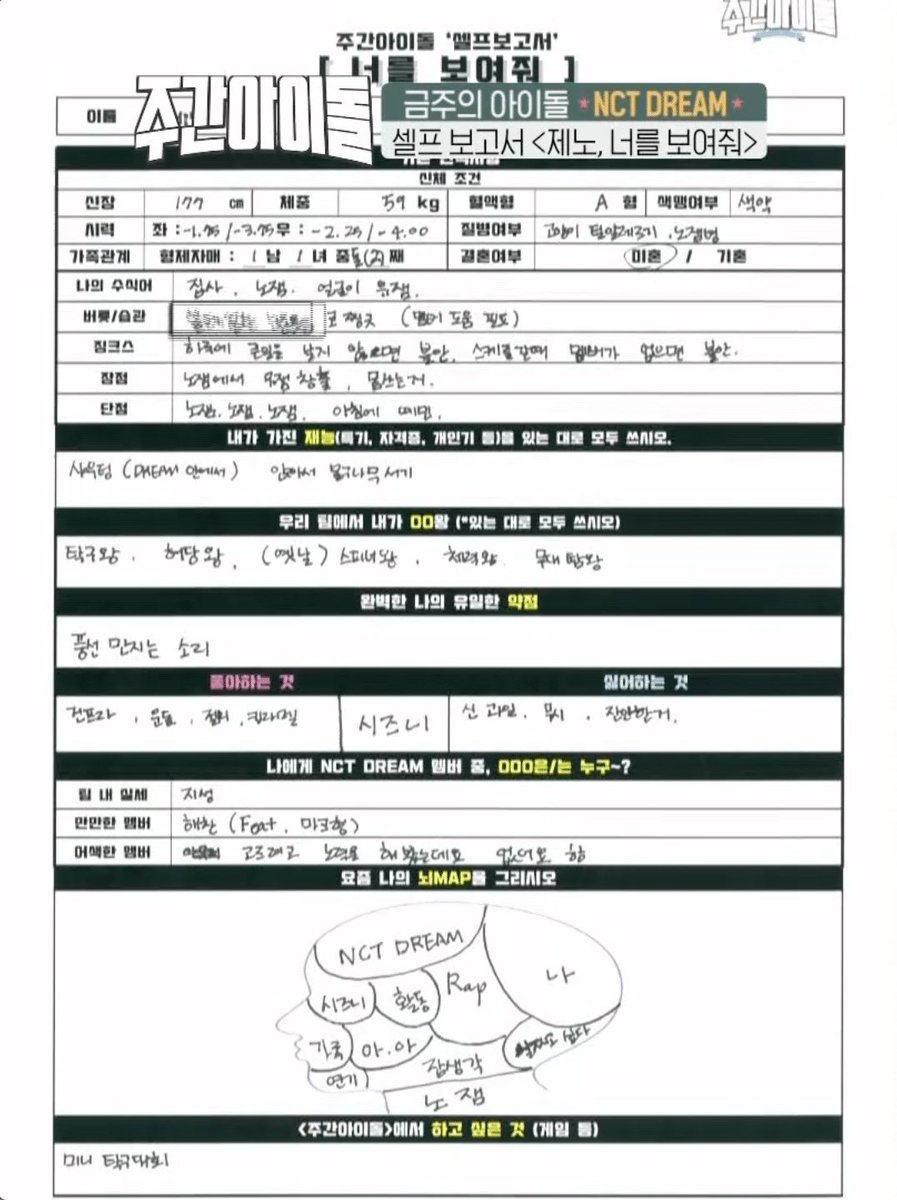 주간아이돌
주간아이돌 '셀프보고서'
[ 너를 보여줘 ]
이름
주간아이돌
금주의 아이돌 NCT DREAM
셀프 보고서 <제노, 너를 보여줘>
신체 조건
신장 177 cm 체중 59 kg 혈액형 A 형 색맹여부 색약
시력 좌 : -1.75 / -3.75 우 : -2.25 / -4.00 질병여부 고양이 털알레르기, 노잼병
가족관계 형제자매 : 1 남 1 녀 중 둘(2)째 결혼여부 미혼 / 기혼
나의 수식어 집사, 노잼, 얼굴이 유잼.
버릇/습관 코 찡긋 (멤버 포옹 필도)
징크스 하루에 렌즈를 끼지 않으면 불안. 스케줄 갈때 멤버가 없으면 불안.
장점 노잼에서 유잼 창출, 몸쓰는거.
단점 노잼. 노잼. 노잼. 아침에 예민.
내가 가진 재능(특기, 자격증, 개인기 등)을 있는 대로 모두 쓰시오.
사육팀 (DREAM 안에서) 앉아서 물구나무서기
우리 팀에서 내가 OO왕 (*있는 대로 모두 쓰시오)
탁구왕, 허당왕, (옛날) 스피너왕, 체력왕 무대 땀왕
완벽한 나의 유일한 약점
풍선 만지는 소리
좋아하는 것 싫어하는 것
건프라, 운동, 젤리, 캬라멜 시즈니 신 과일, 무시, 잔인한거.
나에게 NCT DREAM 멤버 중, OOO은/는 누구~?
팀 내 실세 지성
만만한 멤버 해찬 (Feat. 마크형)
어색한 멤버 고르려고 노력을 해봤는데요 없어요 핳
요즘 나의 뇌MAP을 그리시오
NCT DREAM
나
Rap
시즈니 활동
가족 아.아
잡생각
연기
노 잼
<주간아이돌>에서 하고 싶은 것 (게임 등)
미니 탁구대회